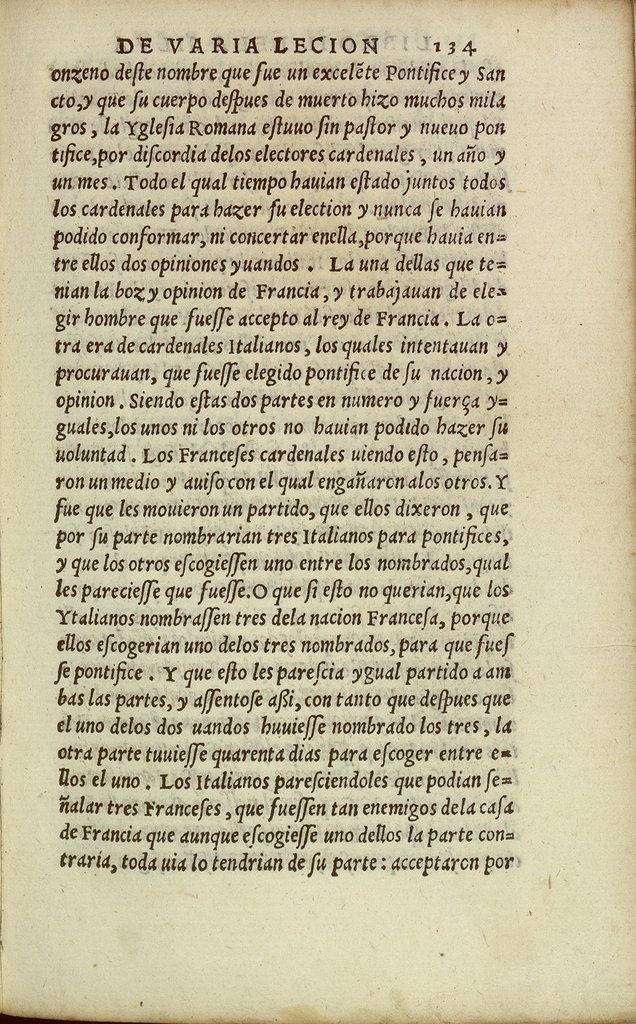 DE VARIA LECION 134
onzeno deſte nombre que fue un excelẽte Pontifice y San
cto, y que ſu cuerpo deſpues de muerto hizo muchos mila
gros, la Ygleſia Romana eſtuuo ſin paſtor y nueuo pon
tifice, por diſcordia delos electores cardenales, un año y
un mes. Todo el qual tiempo hauian eſtado juntos todos
los cardenales para hazer ſu election y nunca ſe hauian
podido conformar, ni concertar enella, porque hauia en=
tre ellos dos opiniones y uandos. La una dellas que te=
nian la boz y opinion de Francia, y trabajauan de ele=
gir hombre que fueſſe accepto al rey de Francia. La o=
tra era de cardenales Italianos, los quales intentauan y
procurauan, que fueſſe elegido pontifice de ſu nacion, y
opinion. Siendo eſtas dos partes en numero y fuerça y=
guales, los unos ni los otros no hauian podido hazer ſu
uoluntad. Los Franceſes cardenales uiendo eſto, penſa=
ron un medio y auiſo con el qual engañaron alos otros. Y
fue que les mouieron un partido, que ellos dixeron, que
por ſu parte nombrarian tres Italianos para pontifices,
y que los otros eſcogieſſen uno entre los nombrados, qual
les parecieſſe que fueſſe. O que ſi eſto no querian, que los
Ytalianos nombraſſen tres dela nacion Franceſa, porque
ellos eſcogerian uno delos tres nombrados, para que fueſ
ſe pontifice. Y que eſto les pareſcia ygual partido a am
bas las partes, y aſſentoſe aßi, con tanto que deſpues que
el uno delos dos uandos huuieſſe nombrado los tres, la
otra parte tuuieſſe quarenta dias para eſcoger entre e=
llos el uno. Los Italianos pareſciendoles que podian ſe=
ñalar tres Franceſes, que fueſſen tan enemigos dela caſa
de Francia que aunque eſcogieſſe uno dellos la parte con=
traria, toda uia lo tendrian de ſu parte: acceptaron por